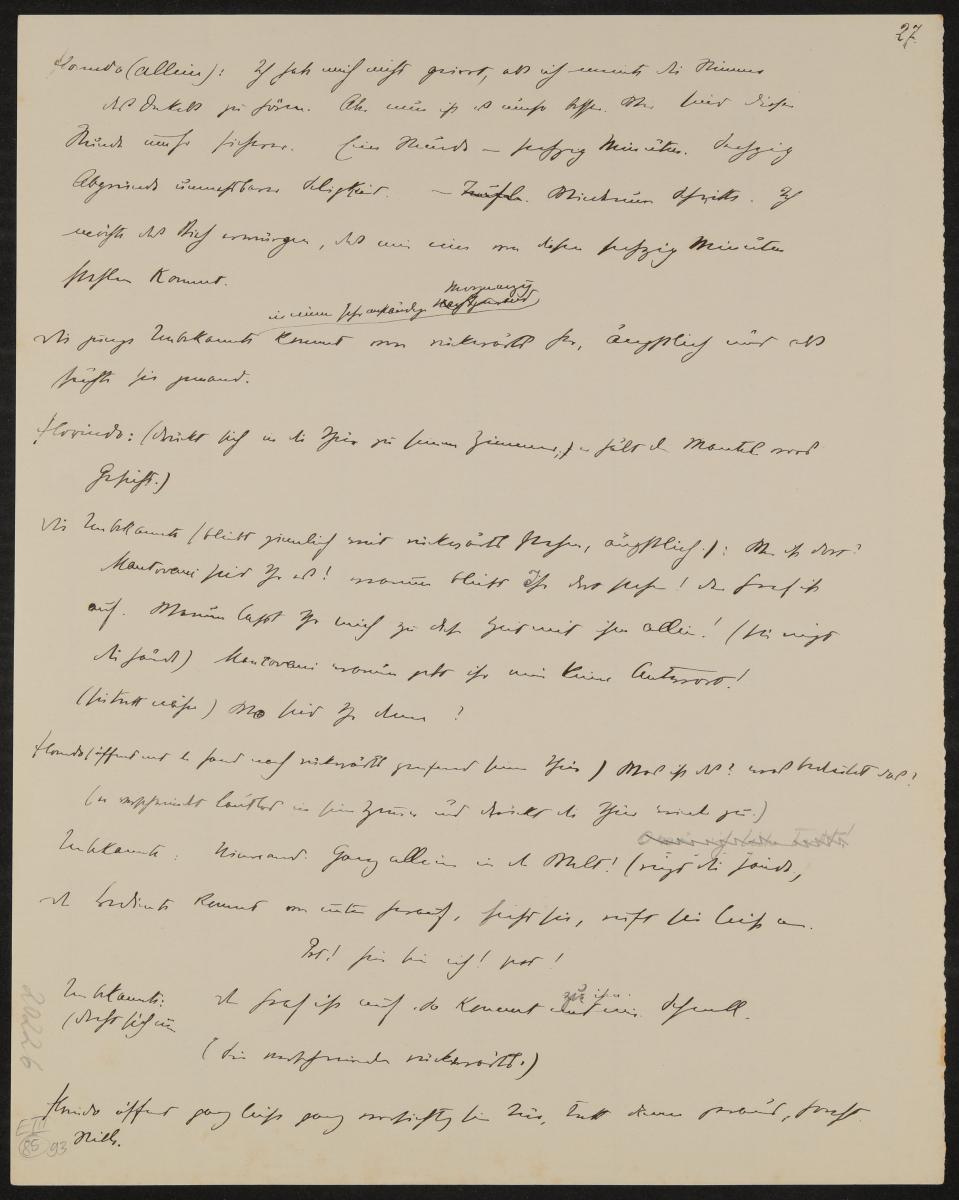 27.
Florindo (allein): Ich hab mich nicht geirrt, als ich meinte die Stimme
des Onkels zu hören. Aber nun ist es umso besser. Wir sind diese
Stunde umso sicherer. Eine Stunde – sechzig Minuten. Sechzig
Abgründe unnennbarer Seligkeit. – Schritte. Ich
möchte das Vieh erwürgen, das mir eine von diesen sechzig Minuten
stehlen kommt.
in einem Morgenanzug
Die junge Unbekannte kommt von rückwärts her, ängstlich und als
suchte sie jemand.
Florindo: (drückt sich in die Thür zu seinem Zimmer, er hält den Mantel vors
Gesicht.)
Die Unbekannte (bleibt ziemlich weit rückwärts stehen, ängstlich.): Wer ist dort?
Mantovani seid Ihr es! warum bleibt Ihr dort stehen! der Graf ist
auf. Warum lasst Ihr mich zu dieser Zeit mit ihm allein! (sie ringt
die Hände) Mantovani warum gebt ihr mir keine Antwort!
(sie tritt näher) Wo seid Ihr denn?
Florindo (öffnet mit der Hand nach rückwärts greifend seine Thür) Was ist das? was bedeutet das?
(er verschwindet lautlos in sein Zimmer und drückt die Thür wieder zu.)
Unbekannte: Niemand. Ganz allein in der Welt! (ringt die Hände,
der Bediente kommt von unten herauf, sieht sie, ruft sie leise an.
Pst! hier bin ich! pst!
Unbekannte: der Graf ist auf. Er kommt zu ihr. Schnell.
(dreht sich um
(Sie verschwinden rückwärts.)
Florindo öffnet ganz leise ganz vorsichtig die Thür, tritt dann heraus, horcht.
Stille.
20226
E III
85 93